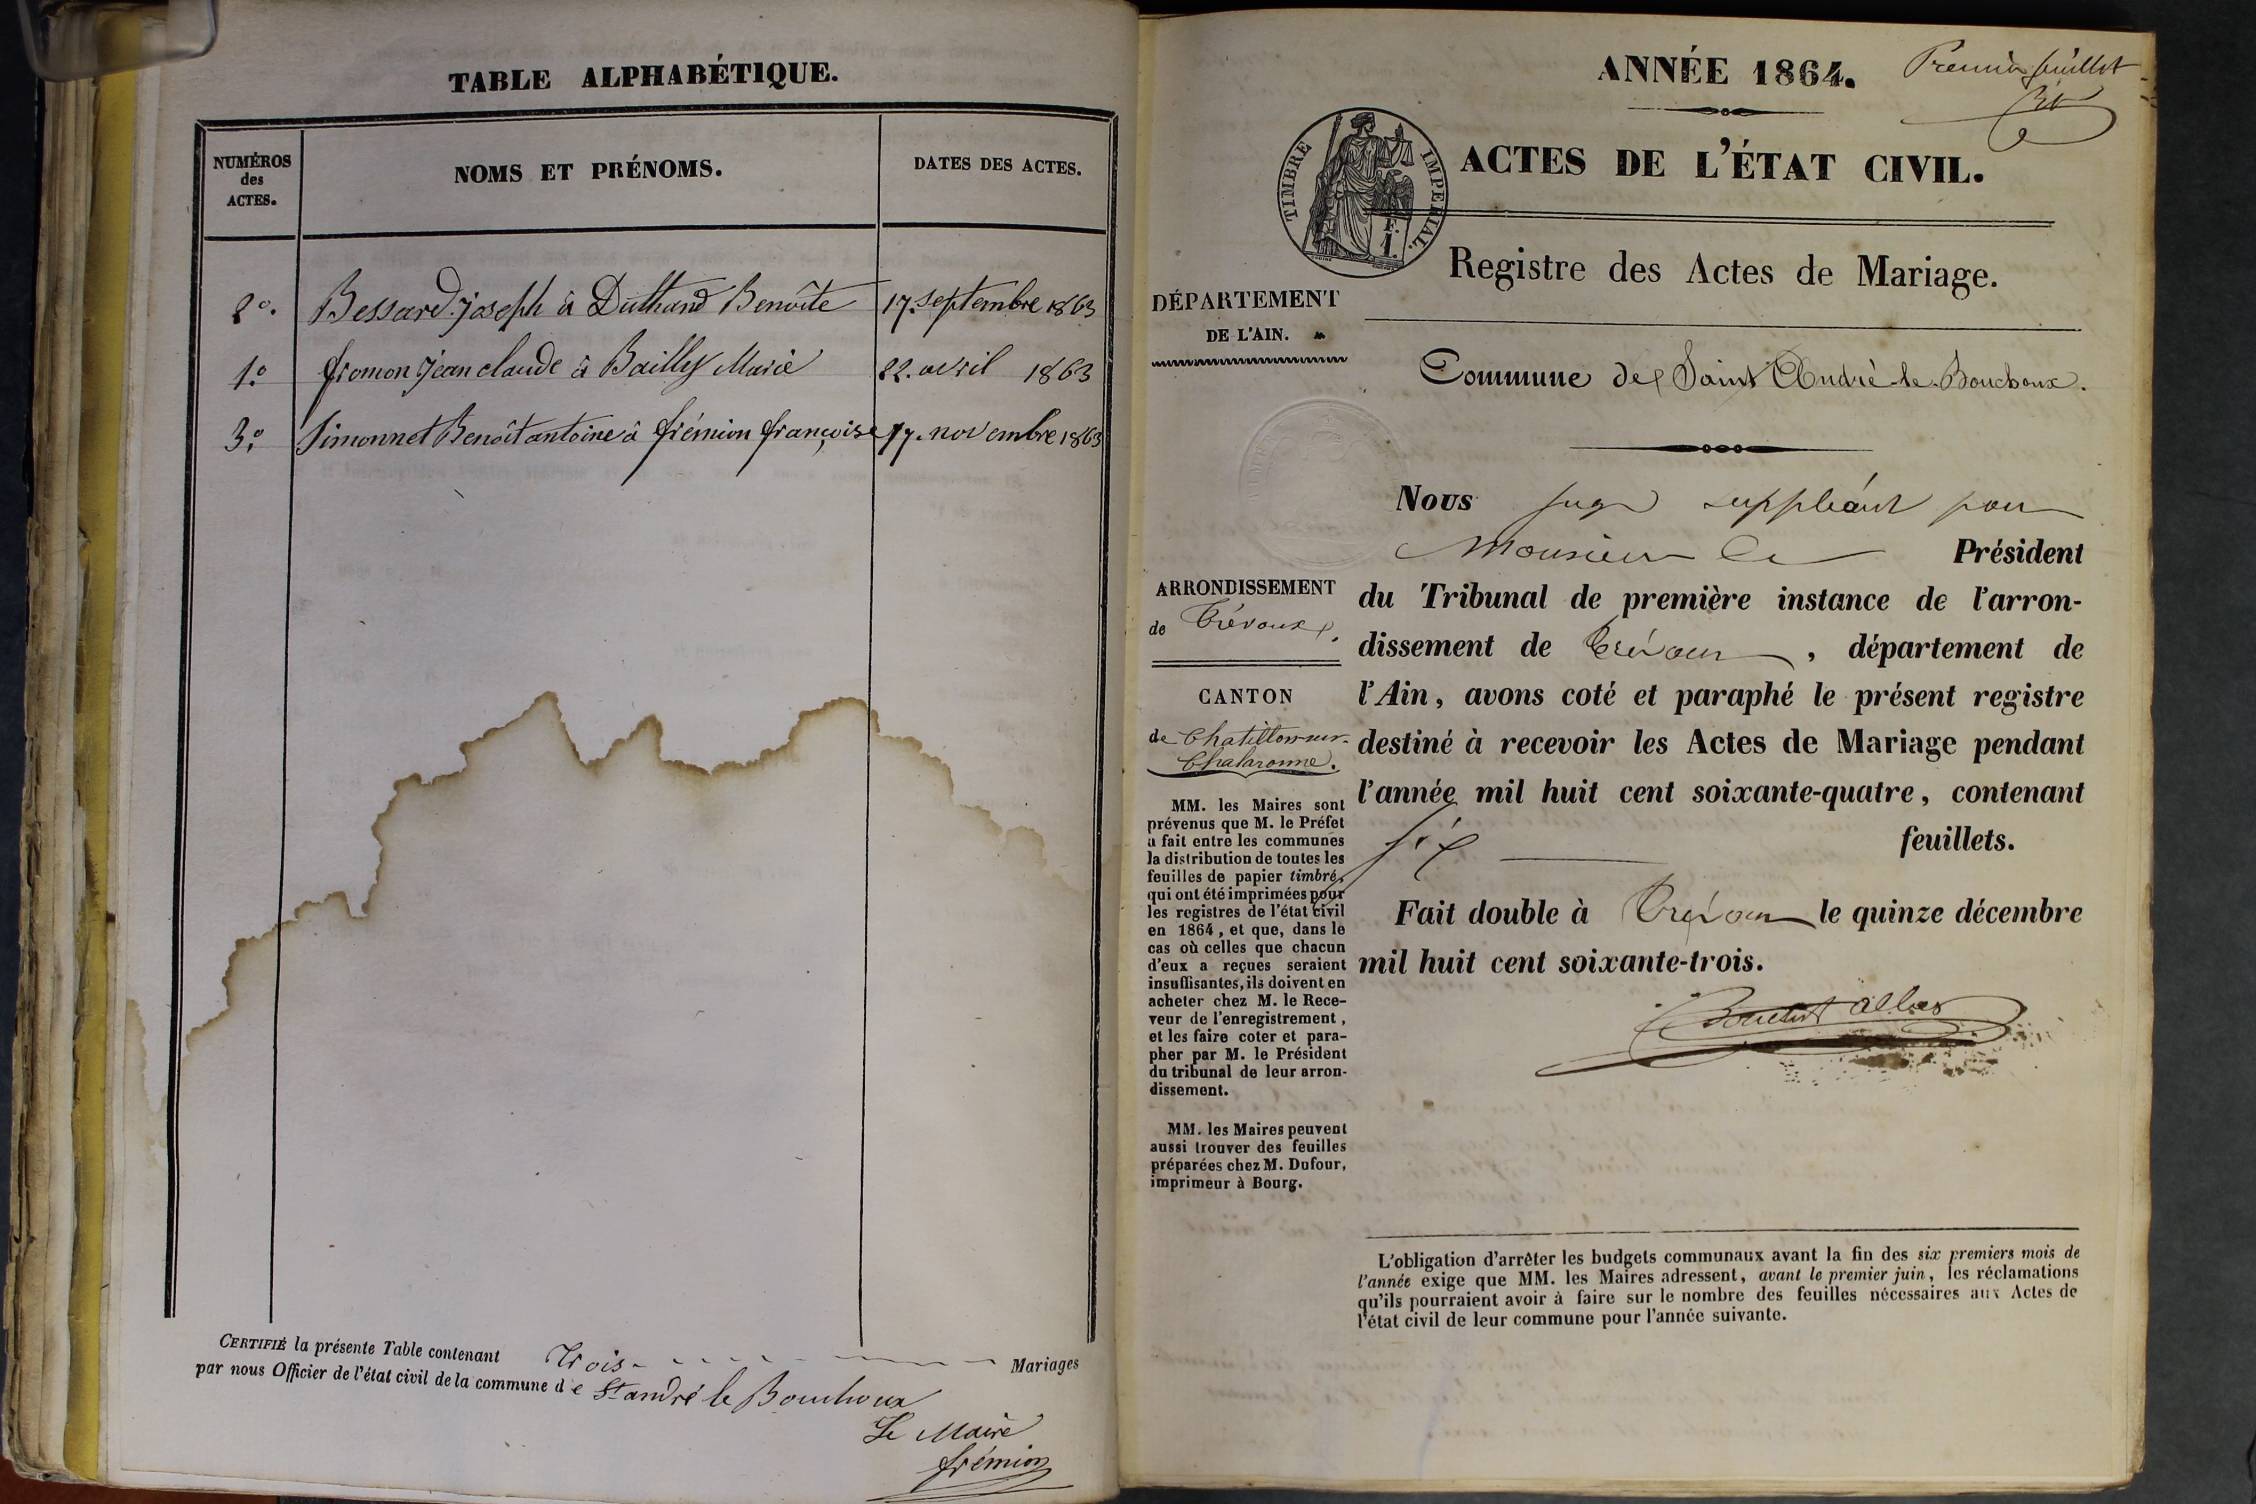 TABLE ALPHABÉTIQUE.
NUMÉROS
des
ACTES.
NOMS ET PRÉNOMS.
DATES DES ACTES.
2º. Bessard Joseph à Duthand Benoîte 17. septembre 1863
1.º fromon jean claude à Bailly Marie 22. avril 1863
3.º Simonnet Benoît antoine à frémion françoise 17. novembre 1863
CERTIFIÉ la présente Table contenant trois Mariages
par nous Officier de l'état civil de la commune de St andré le Bouchoux
Le Maire
frémion
ANNÉE 1864.
Premier feuillet
TIMBRE IMPÉRIAL.
F.
1.
ACTES DE L'ÉTAT CIVIL.
Registre des Actes de Mariage.
DÉPARTEMENT
DE L'AIN.
Commune de Saint André-le-Bouchoux.
ARRONDISSEMENT
de Trévoux.
CANTON
de Chatillon-sur-
Chalaronne.
MM. les Maires sont
prévenus que M. le Préfet
a fait entre les communes
la distribution de toutes les
feuilles de papier timbré,
qui ont été imprimées pour
les registres de l'état civil
en 1864, et que, dans le
cas où celles que chacun
d'eux a reçues seraient
insuffisantes, ils doivent en
acheter chez M. le Rece-
veur de l'enregistrement,
et les faire coter et para-
pher par M. le Président
du tribunal de leur arron-
dissement.
MM. les Maires peuvent
aussi trouver des feuilles
préparées chez M. Dufour,
imprimeur à Bourg.
Nous juge suppléant pour
Monsieur le Président
du Tribunal de première instance de l'arron-
dissement de Trévoux, département de
l'Ain, avons coté et paraphé le présent registre
destiné à recevoir les Actes de Mariage pendant
l'année mil huit cent soixante-quatre, contenant
six feuillets.
Fait double à Trévoux le quinze décembre
mil huit cent soixante-trois.
L'obligation d'arrêter les budgets communaux avant la fin des six premiers mois de
l'année exige que MM. les Maires adressent, avant le premier juin, les réclamations
qu'ils pourraient avoir à faire sur le nombre des feuilles nécessaires aux Actes de
l'état civil de leur commune pour l'année suivante.